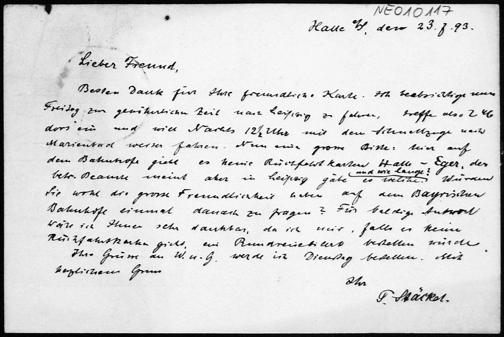 NEO10117
Halle a/S, den 23. 7. 93.
Lieber Freund,
Besten Dank für Ihre freundliche Karte. Ich beabsichtige nun
Freitag zur gewöhnlichen Zeit nach Leipzig zu fahren, treffe also 2 46
dort ein und will Nachts 12½ Uhr mit dem Schnellzuge nach
Marienbad weiter fahren. Nun eine grosse Bitte: hier auf
dem Bahnhofe giebt es keine Rückfahrtkarten Halle - Eger, der
betr. Beamte meint aber in Leipzig gäbe es welche
und wie lange?
Würden
Sie wohl die grosse Freundlichkeit haben auf dem Bayrischen
Bahnhofe einmal danach zu fragen? Für baldige Antwort
wäre ich Ihnen sehr dankbar, da ich mir, falls es keine
Rückfahrtkarten giebt, ein Rundreisebillet bestellen würde.
Ihre Grüsse an W. u. G. werde ich Dienstag bestellen. Mit
herzlichem Gruss
Ihr
P. Stäckel.